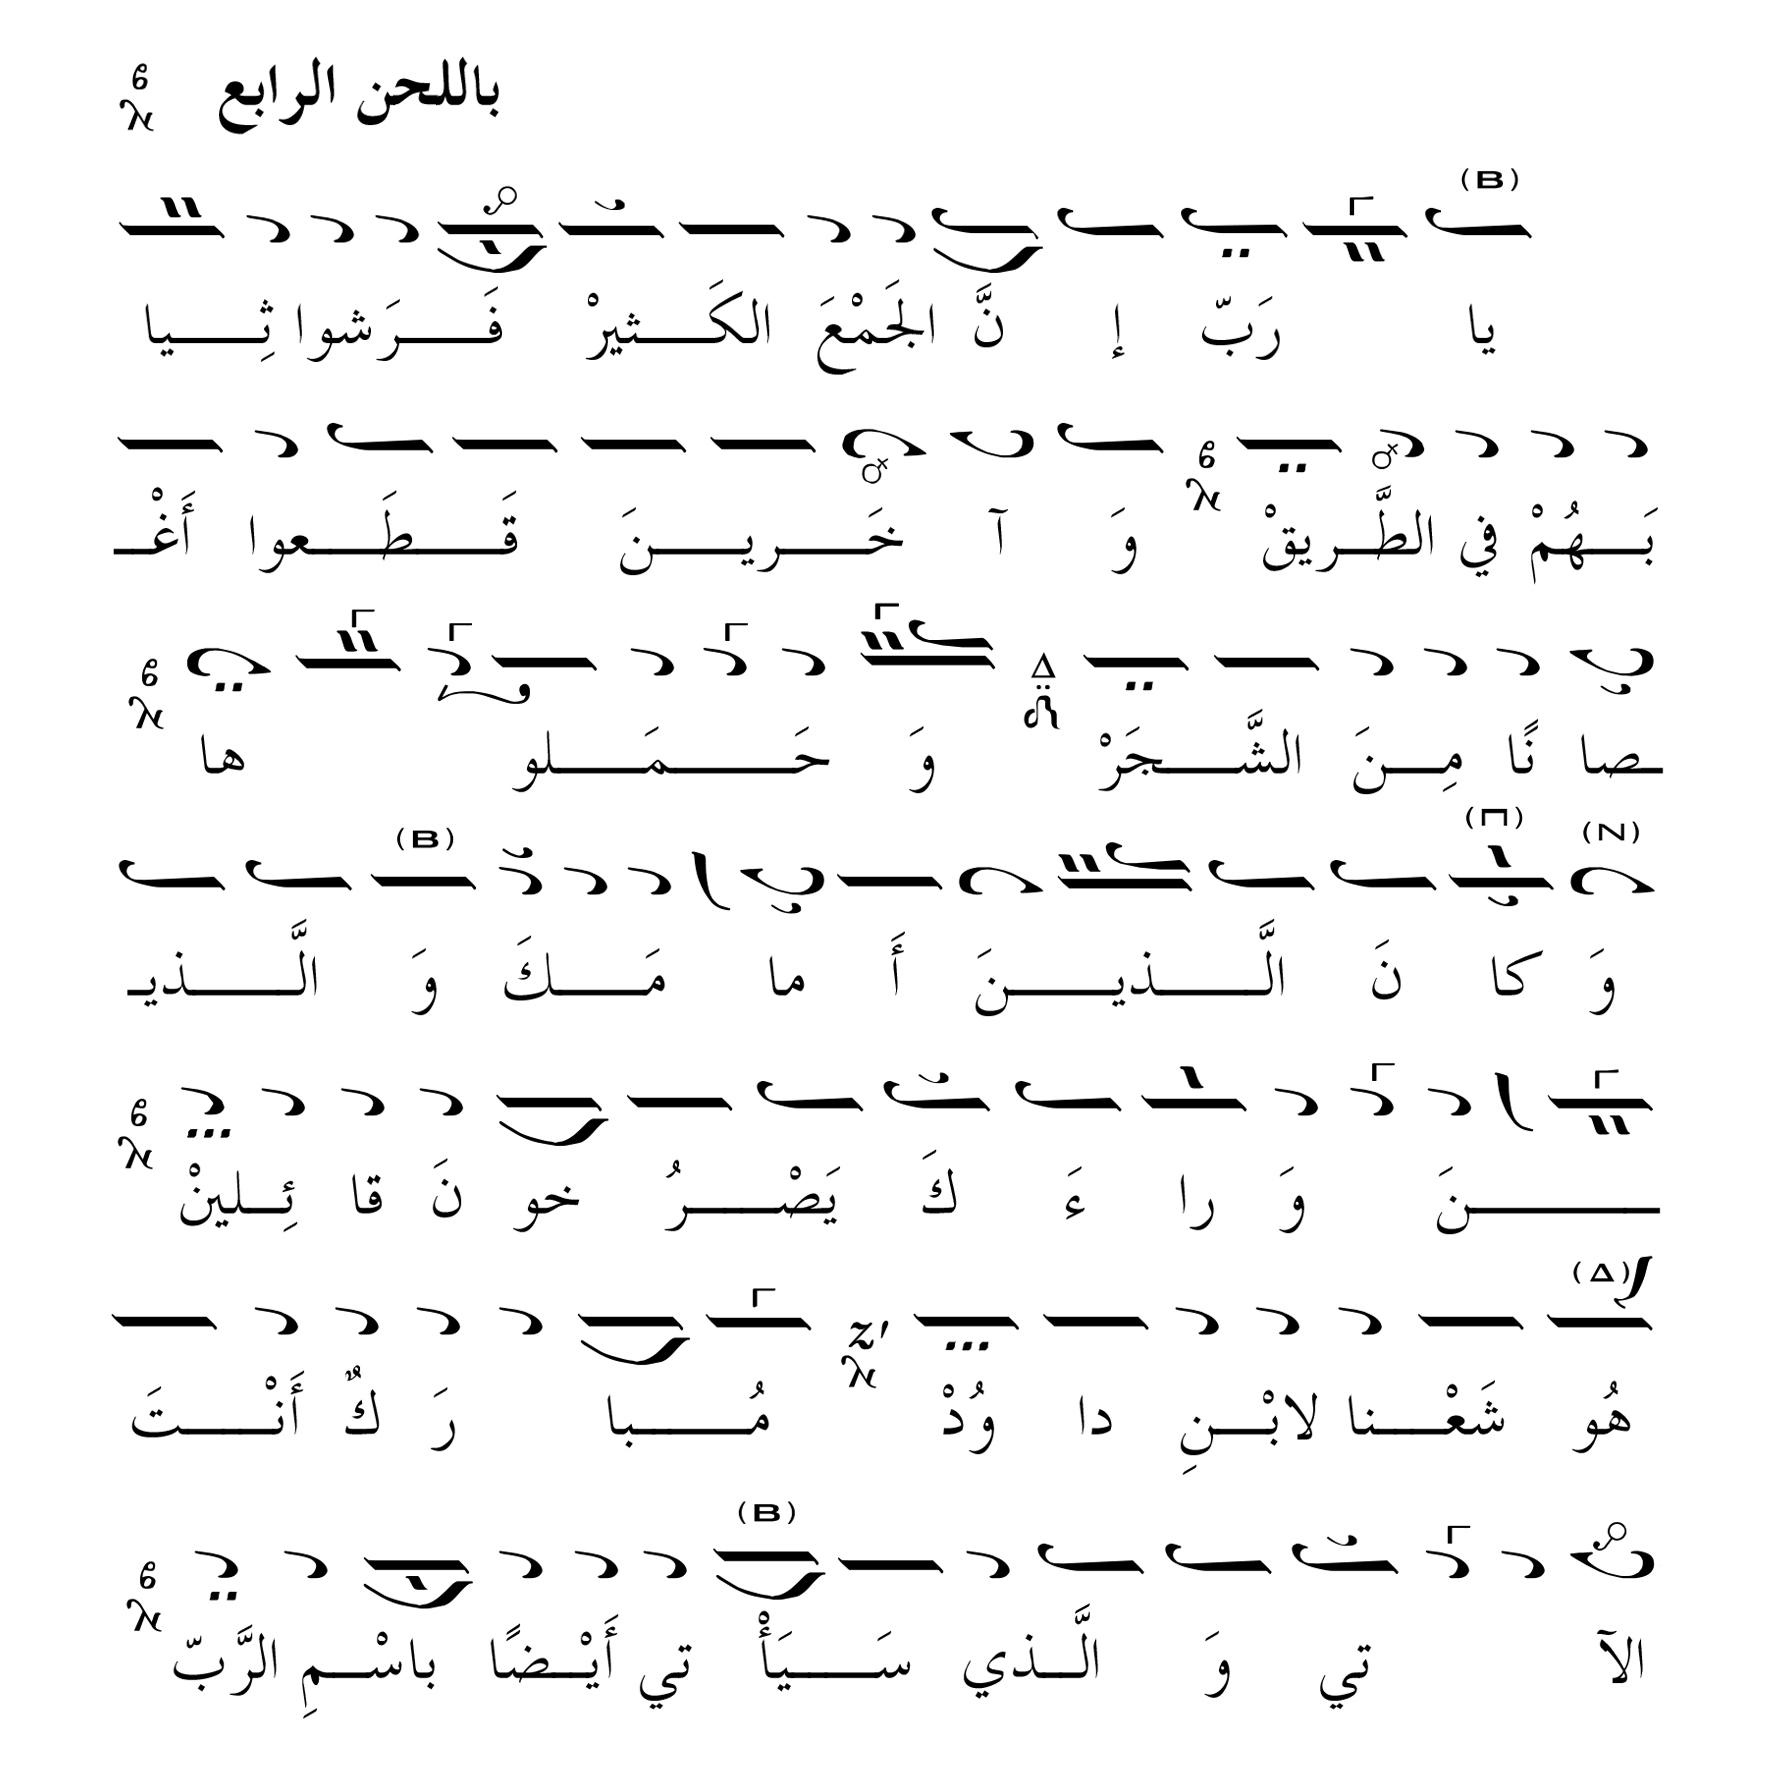 باللحن الرابع
يا رَبّ إ نَّ الجَمْعَ الكَـثيرْ فَـرَشوا ثِـيا
بَـهُمْ في الطَّـريقْ وَ آ خَـريـنَ قَـطَـعوا أَغْـ
ـصا نًا مِـنَ الشَّـجَرْ وَ حَـمَـلو ها
وَ كا نَ الَّـذيـنَ أَ ما مَـكَ وَ الَّـذيـ
ـنَ وَ را ءَ كَ يَصْـرُ خو نَ قا ئِـلينْ
هُو شَعْـنا لابْـنِ دا وُدْ مُـبا رَ كٌ أَنْـتَ
الآ تي وَ الَّـذي سَـيَأْ تي أَيْـضًا باسْـمِ الرَّبّ